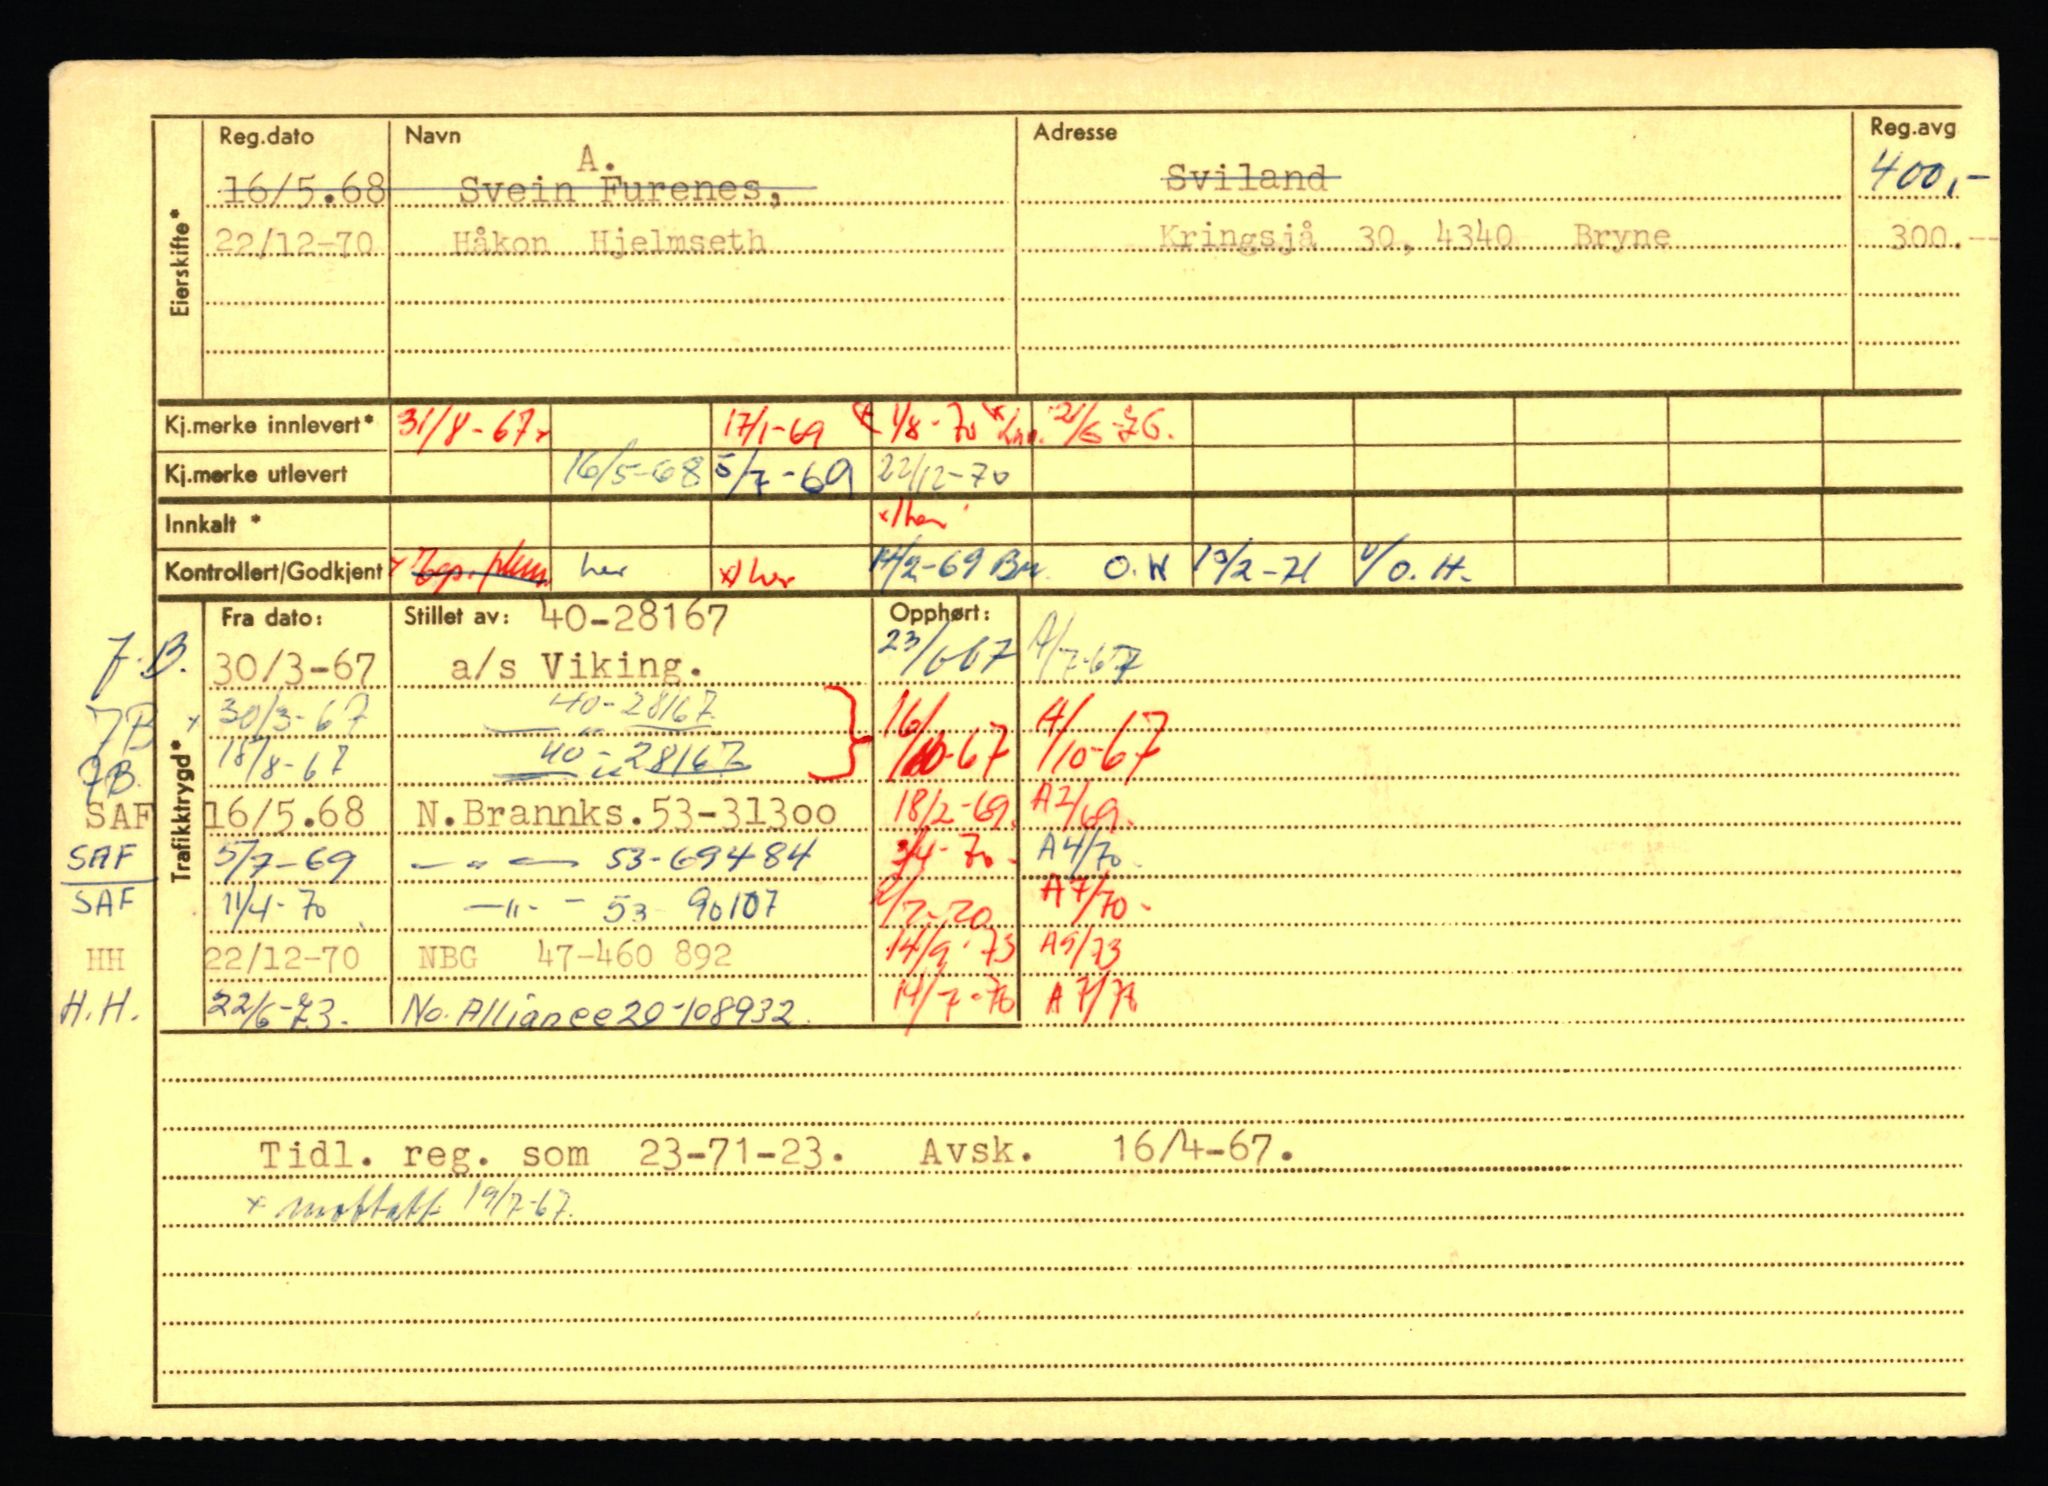 Eierskifte*
Reg.dato Navn Adresse Reg.avg
A.
16/5.68 Svein Furenes, Sviland 400,-
22/12-70 Håkon Hjelmseth Kringsjå 30, 4340 Bryne 300.-
Kj.merke innlevert* 31/8-67 17/1-69 1/8-70 21/6-76.
Kj.merke utlevert 16/5-68 5/7-69 22/12-70
Innkalt * x/her
Kontrollert/Godkjent her x/her 14/2-69 O.H 19/2-71 O.H.
Trafikktrygd*
Fra dato: Stillet av: 40-28167 Opphørt:
7.B. 30/3-67 a/s Viking. 23/6-67 A/7-67
7B x 30/3-67 40-28167 16/10-67 A/10-67
7B. 18/8-67 40-28167
SAF 16/5.68 N.Brannks.53-31300 18/2-69. A2/69.
SAF 5/7-69 — " — 53-69484 3/4-70- A4/70.
SAF 11/4-70 — " - 53 90107 2/7-70 A7/70-
HH 22/12-70 NBG 47-460 892 14/9-73 A9/73
H.H. 22/6-73. No. Alliance 20-108932. 14/7-76 A7/76
Tidl. reg. som 23-71-23. Avsk. 16/4-67.
x mottatt 19/7-67.